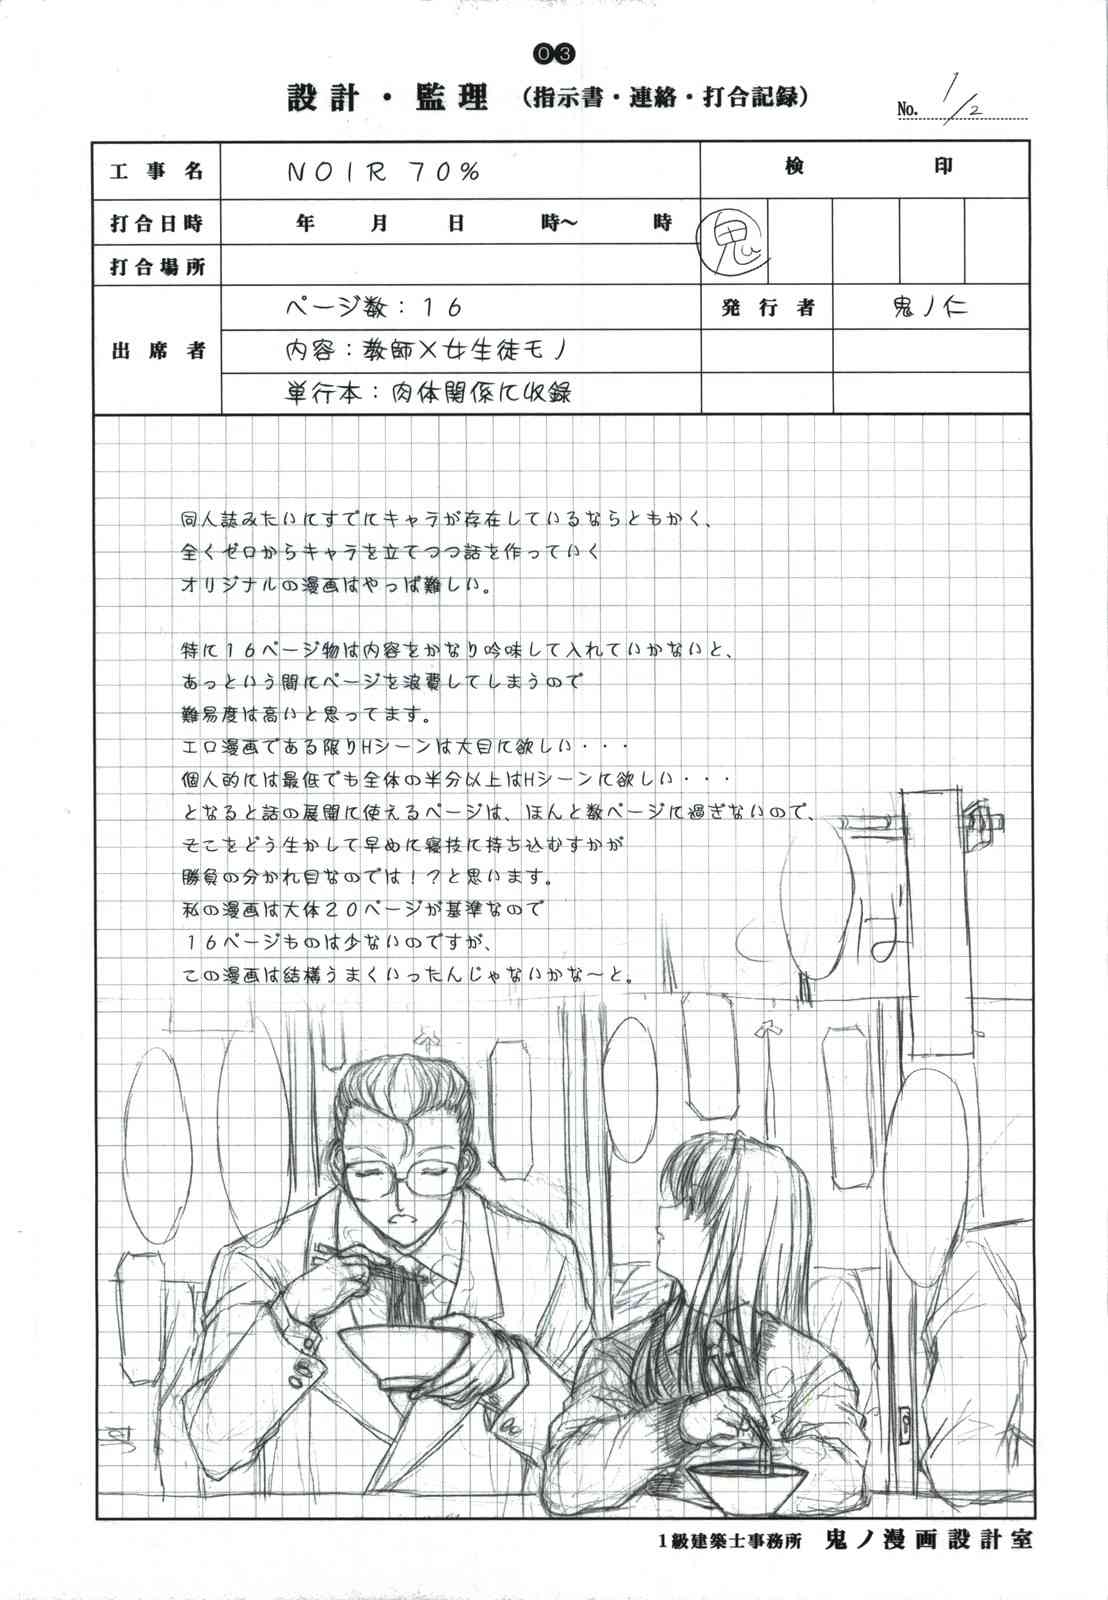 03
設計・監理 (指示書・連絡・打合記録)
No. 1/2
工事名 NOIR 70% 検印
打合日時 年 月 日 時～ 時 鬼
打合場所
出席者 ページ数：16 発行者 鬼ノ仁
内容：教師×女生徒モノ
単行本：肉体関係に収録
同人誌みたいにすでにキャラが存在しているならともかく、
全くゼロからキャラを立てつつ話を作っていく
オリジナルの漫画はやっぱ難しい。
特に16ページ物は内容をかなり吟味して入れていかないと、
あっという間にページを浪費してしまうので
難易度は高いと思ってます。
エロ漫画である限りHシーンは大目に欲しい・・・
個人的には最低でも全体の半分以上はHシーンに欲しい・・・
となると話の展開に使えるページは、ほんと数ページに過ぎないので、
そこをどう生かして早めに寝技に持ち込むすかが
勝負の分かれ目なのでは！？と思います。
私の漫画は大体20ページが基準なので
16ページものは少ないのですが、
この漫画は結構うまくいったんじゃないかな～と。
そば
1級建築士事務所 鬼ノ漫画設計室